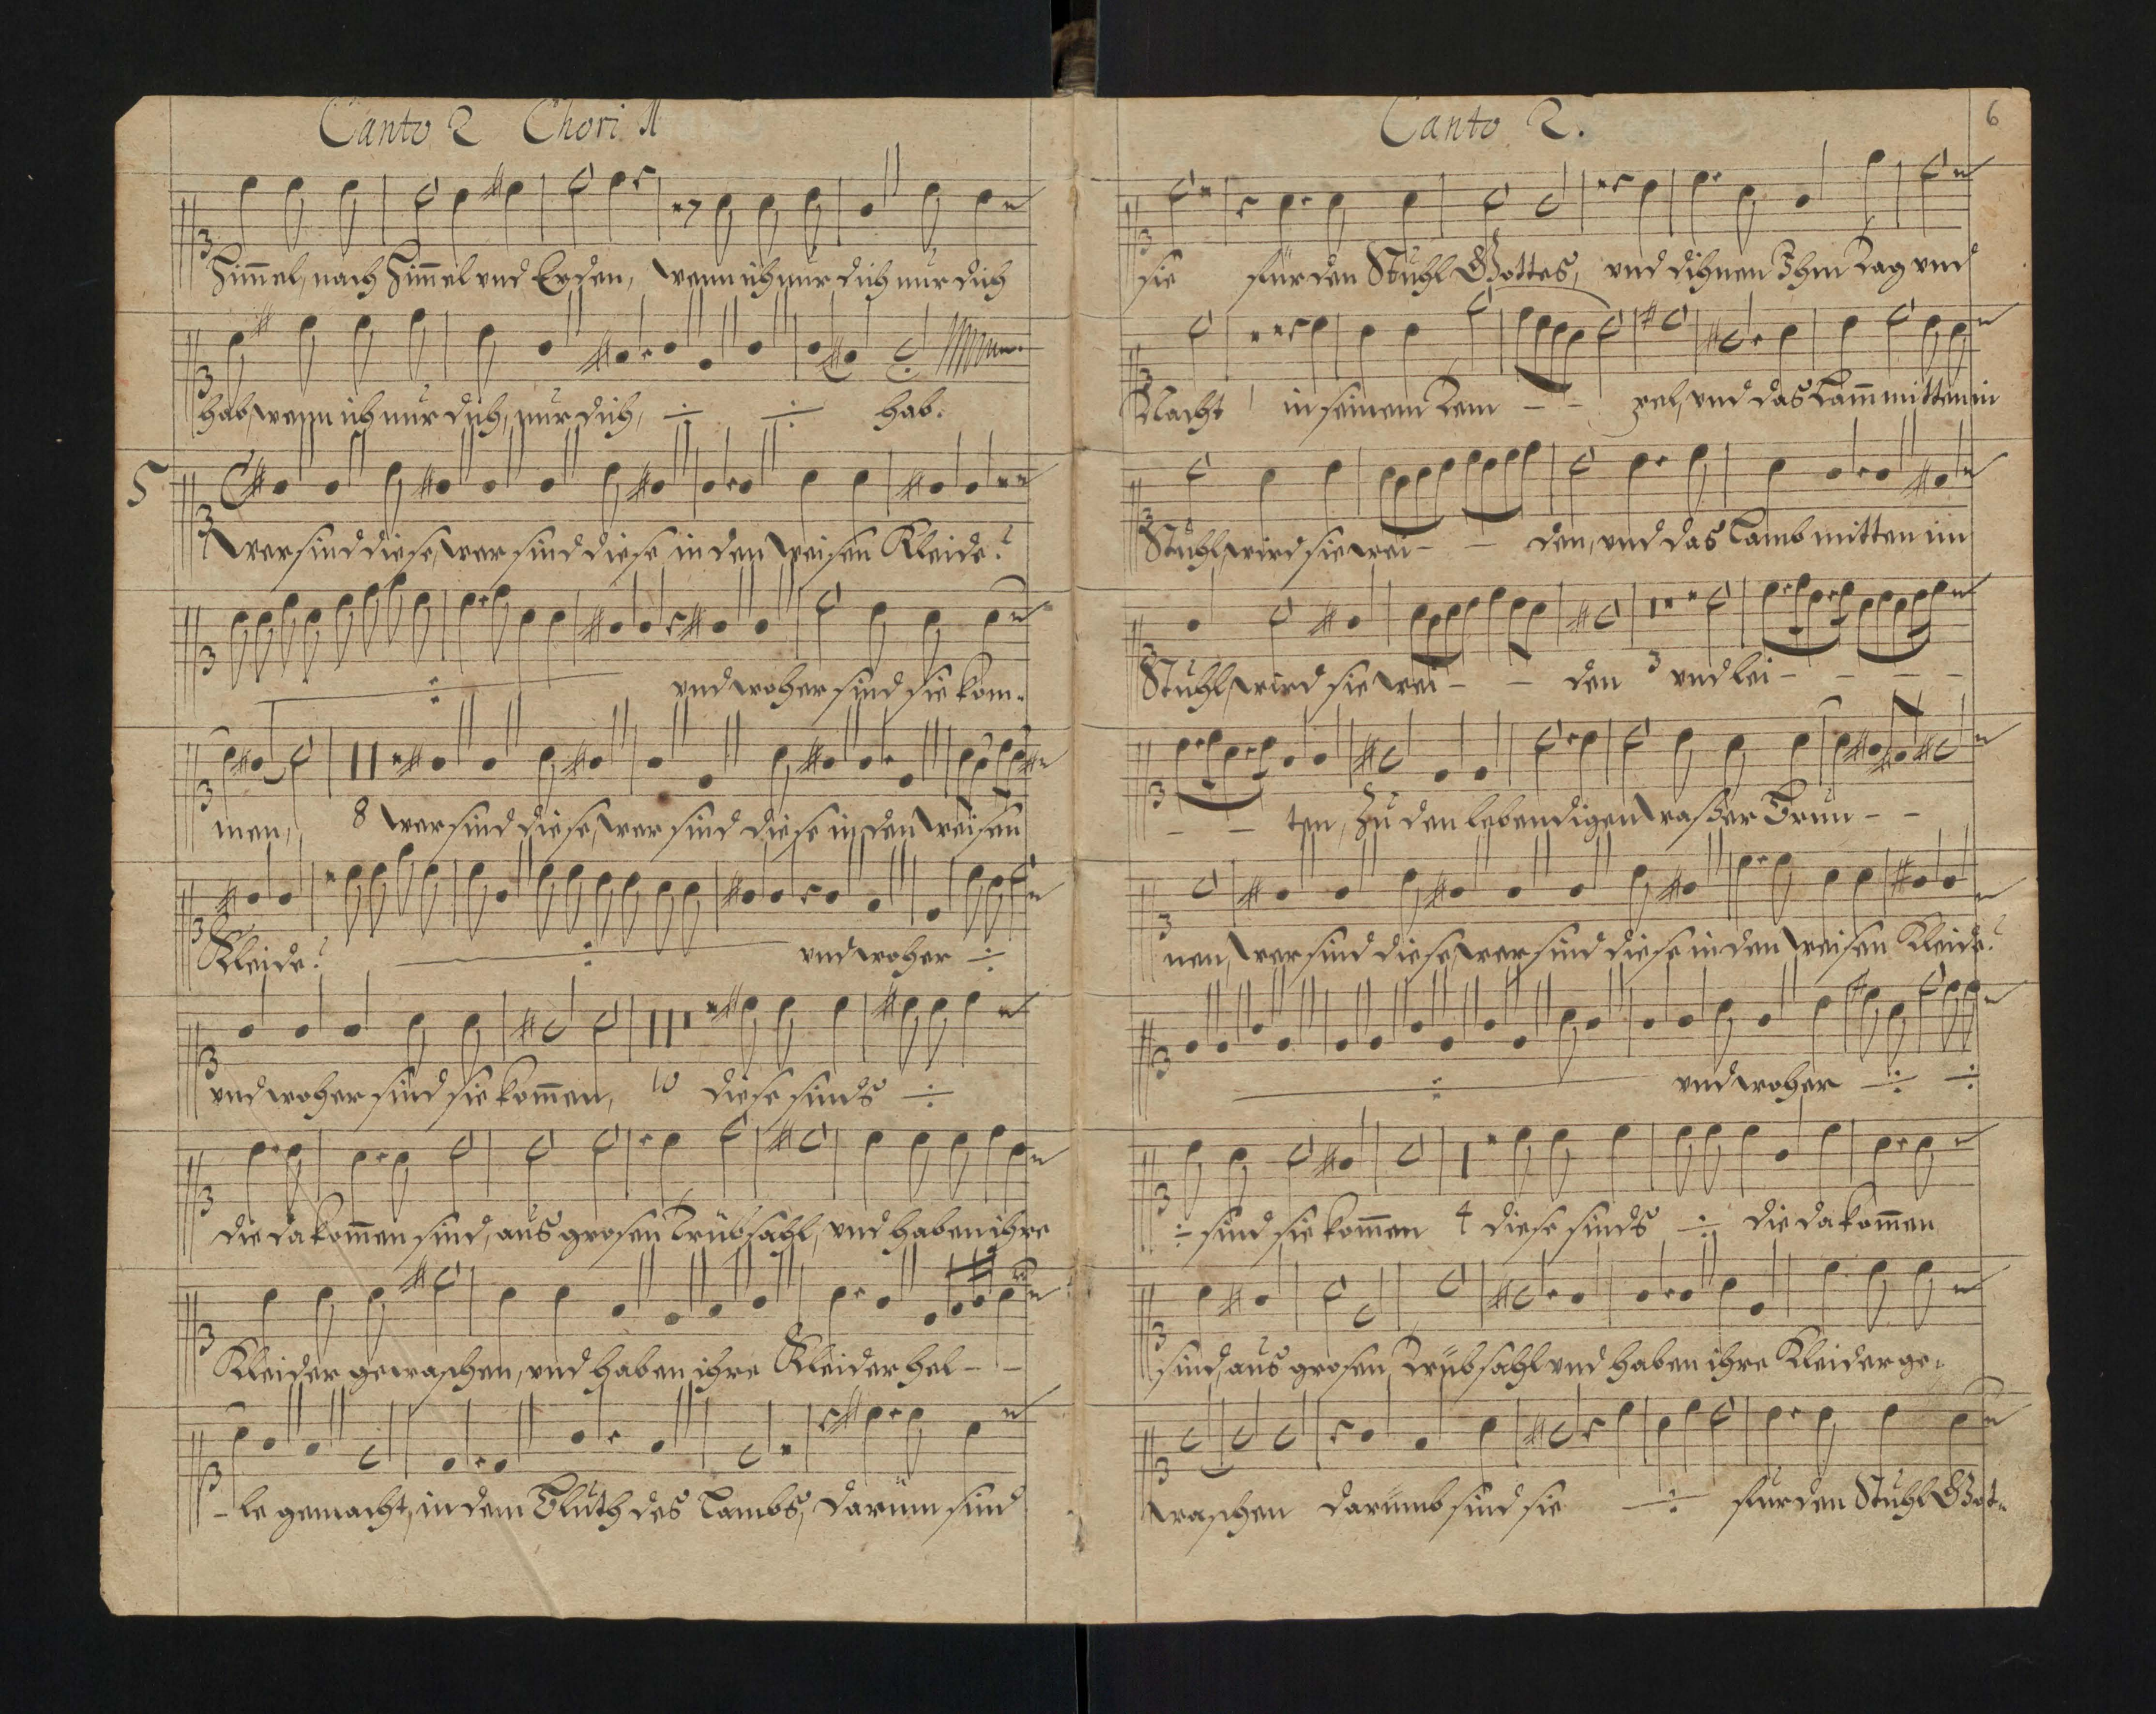 Canto 2 Chori 1
Him̃el, nach Him̃el und Erden, wenn ich nur dich nur dich
hab, wenn ich nur dich, nur dich, ÷ ÷ hab.
5
Wer sind diese, wer sind diese in den weisen Kleide?
÷ und woher sind sie kom-
men, 8 wer sind diese, wer sind diese in den weisen
Kleide? ÷ und woher ÷
und woher sind sie kom̃en, 10 diese sinds ÷
die da kom̃en sind, aus grosen Trübsahl, und haben ihre
Kleider gewaschen, und haben ihre Kleider hel - -
- le gemacht, in dem Bluth des Lambs, darum sind
Canto 2.
6
sie für den Stuhl Gottes, und dihnen Ihm Tag und
Nacht in seinem Tem - - pel, und das Lam̃ mitten in
Stuhl, wird sie wei - - den, und das Lamb mitten im
Stuhl, wird sie wei - - den 3 und lei - - - -
- - ten, zu den lebendigen Waßer Brun - -
nen, wer sind diese, wer sind diese in den weisen Kleide?
÷ und woher ÷ ÷
÷ sind sie kom̃en 4 diese sinds ÷ die da kom̃en
sind, aus grosen Trübsahl und haben ihre Kleider ge-
waschen darumb sind sie ÷ für den Stuhl Got-